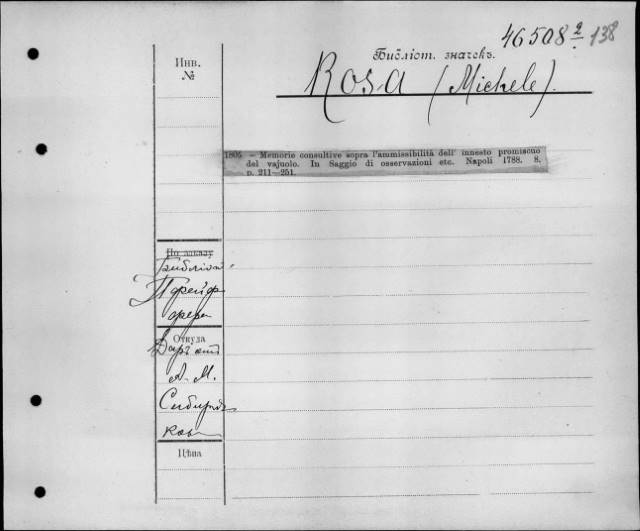 46508 2/138
Библіот. значекъ.
Инв.
№
Rosa (Michele).
1805 — Memorie consultive sopra l'ammissibilità dell' innesto promiscuo
del vajuolo. In Saggio di osservazioni etc. Napoli 1788. 8.
p. 211—251.
По заказу
Откуда
Даръ
А. М.
Сибиряковъ
Цѣна